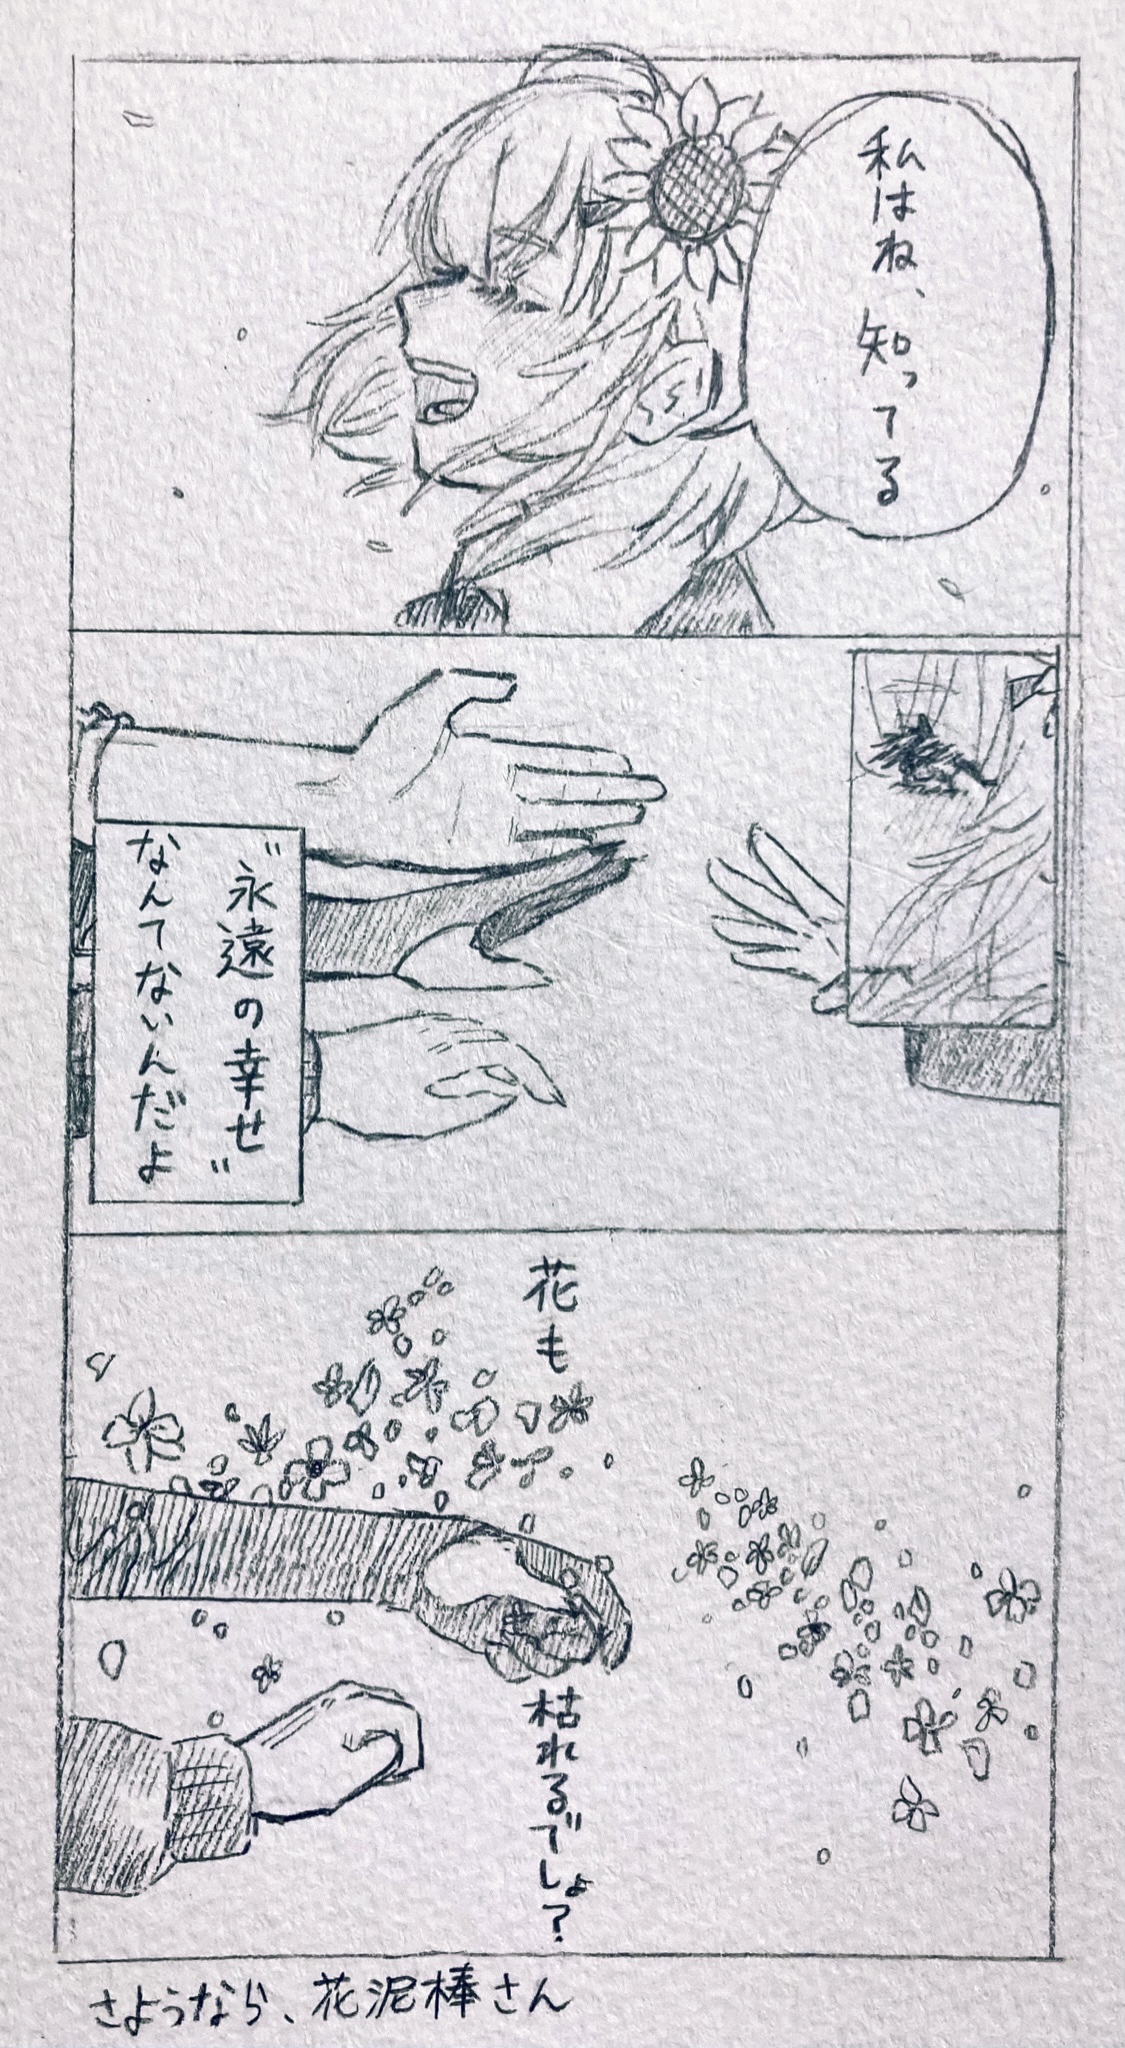 私はね、知ってる
"永遠の幸せ"
なんてないんだよ
花も
枯れるでしょ?
さようなら、花泥棒さん